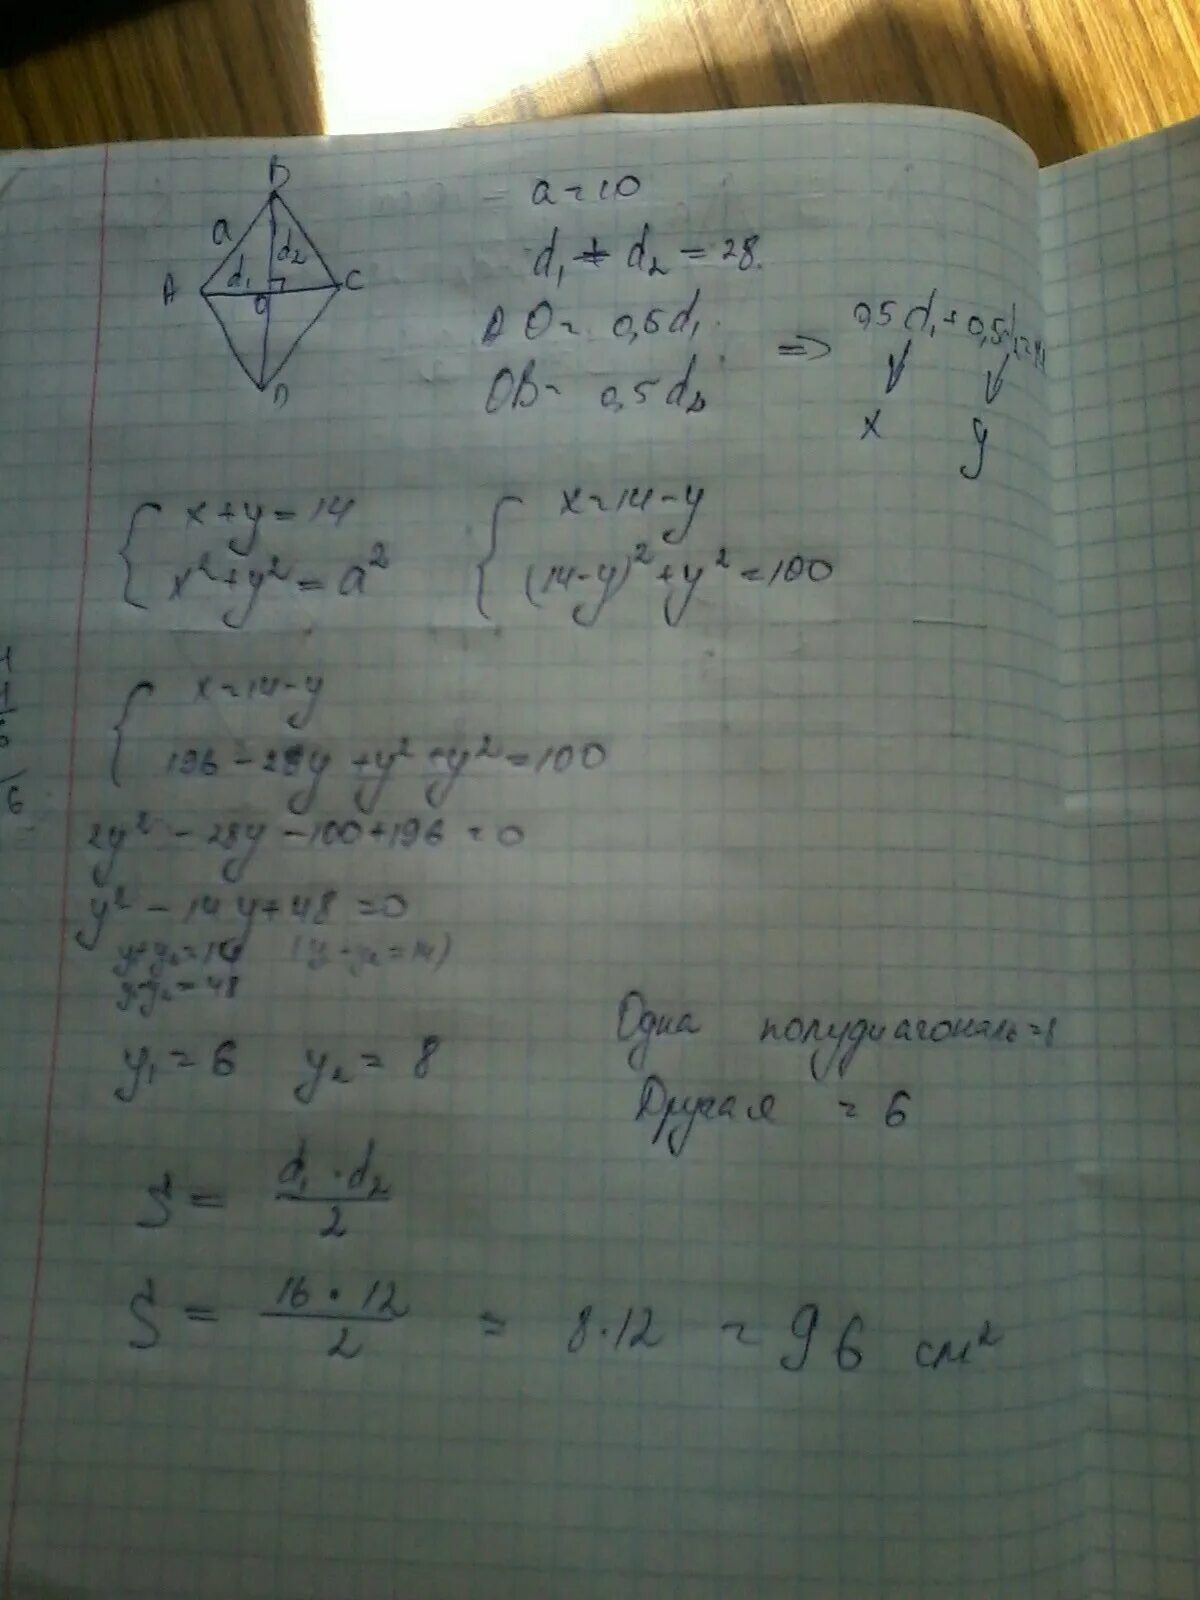 B
a
d₂
d₁
A
C
O
D
a = 10
d₁ + d₂ = 28.
AO = 0,5d₁
OB = 0,5d₂
=> 0,5d₁ + 0,5d₂=14
x y
{ x+y = 14
x² + y² = a²
{ x = 14 - y
(14-y)² + y² = 100
{ x = 14 - y
196 - 28y + y² + y² = 100
2y² - 28y - 100 + 196 = 0
y² - 14y + 48 = 0
y₂ = 14
y₂ = 48
y₁ = 6 y₂ = 8
Одна полудиагональ = 8
Другая = 6
S = d₁ · d₂ / 2
S = 16 · 12 / 2 = 8 · 12 = 96 см²